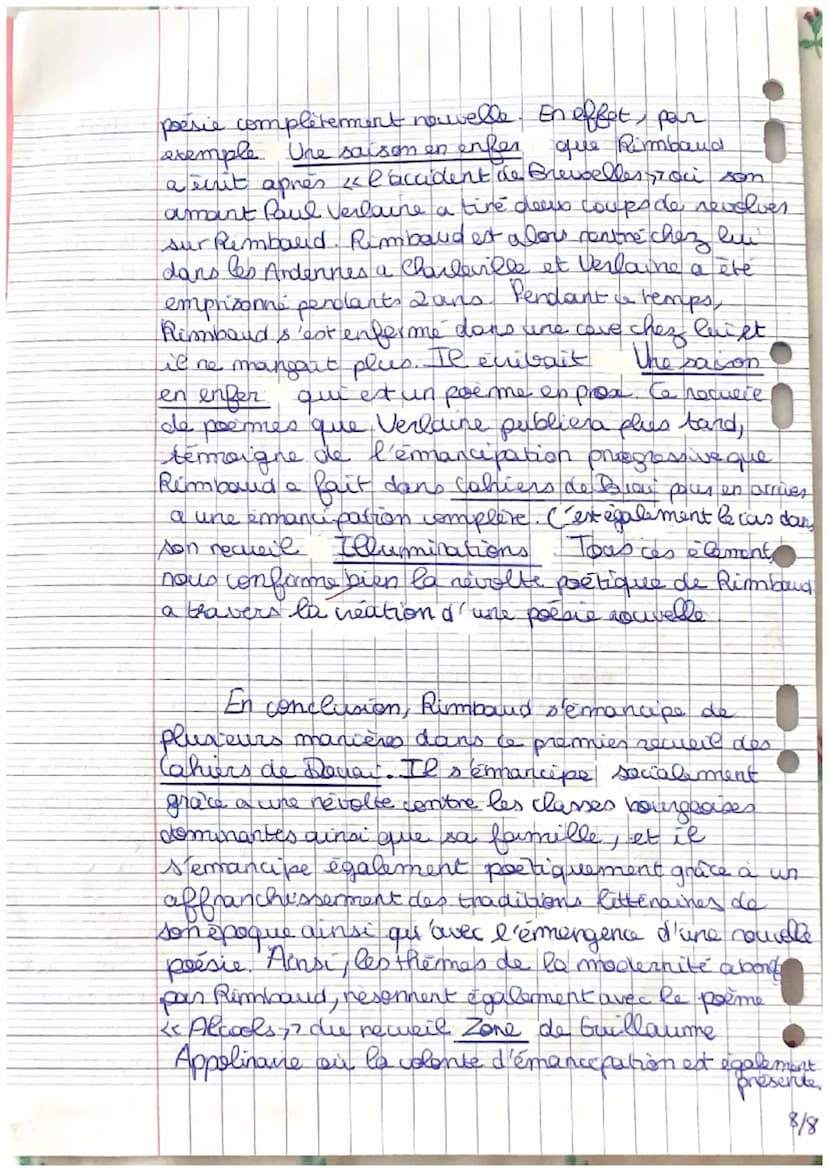 poésie complètement nouvelle. En effet, par
exemple Une saison en enfer que Rimbaud
a écrit après << l'accident de Bruxelles >> où son
amant Paul Verlaine a tiré deux coups de revolver
sur Rimbaud. Rimbaud est alors rentré chez lui
dans les Ardennes a Charleville et Verlaine a été
emprizonné pendants 2 ans. Pendant ce temps,
Rimbaud s'est enfermé dans une cave chez lui et
il ne mangait plus. Il écribait Une saison
en enfer qui est un poème en prox. Ce recueie
de poèmes que Verlaine publiera plus tard,
témoigne de l'émancipation progressive que
Rimbaud a fait dans Cahiers de Douai pour en arriver
a une émancipation complère. C'est également le cas dans
son recueil Illuminations. Tous ces élément
nous confirme bien la révolte poétique de Rimbaud
a travers la création d'une poésie nouvelle
En conclusion, Rimbaud s'émancipe de
plusieurs manières dans ce premier recueil des
Cahiers de Douai. Il s'émancipe socialement
grâce a une révolte contre les classes bourgeoises
dominantes ainsi que sa famille, et il
s'emancipe également poétiquement grâce à un
affranchissement des traditions littéraires de
son époque ainsi qu'avec l'émergence d'une nouvelle
poésie. Ainsi, les thèmes de la modernité abord
par Rimbaud, résonnent également avec le poème
<< Alcools >> du recueil Zone de Guillaume
Appolinaire où la volonté d'émancipation est également
présente.
8/8